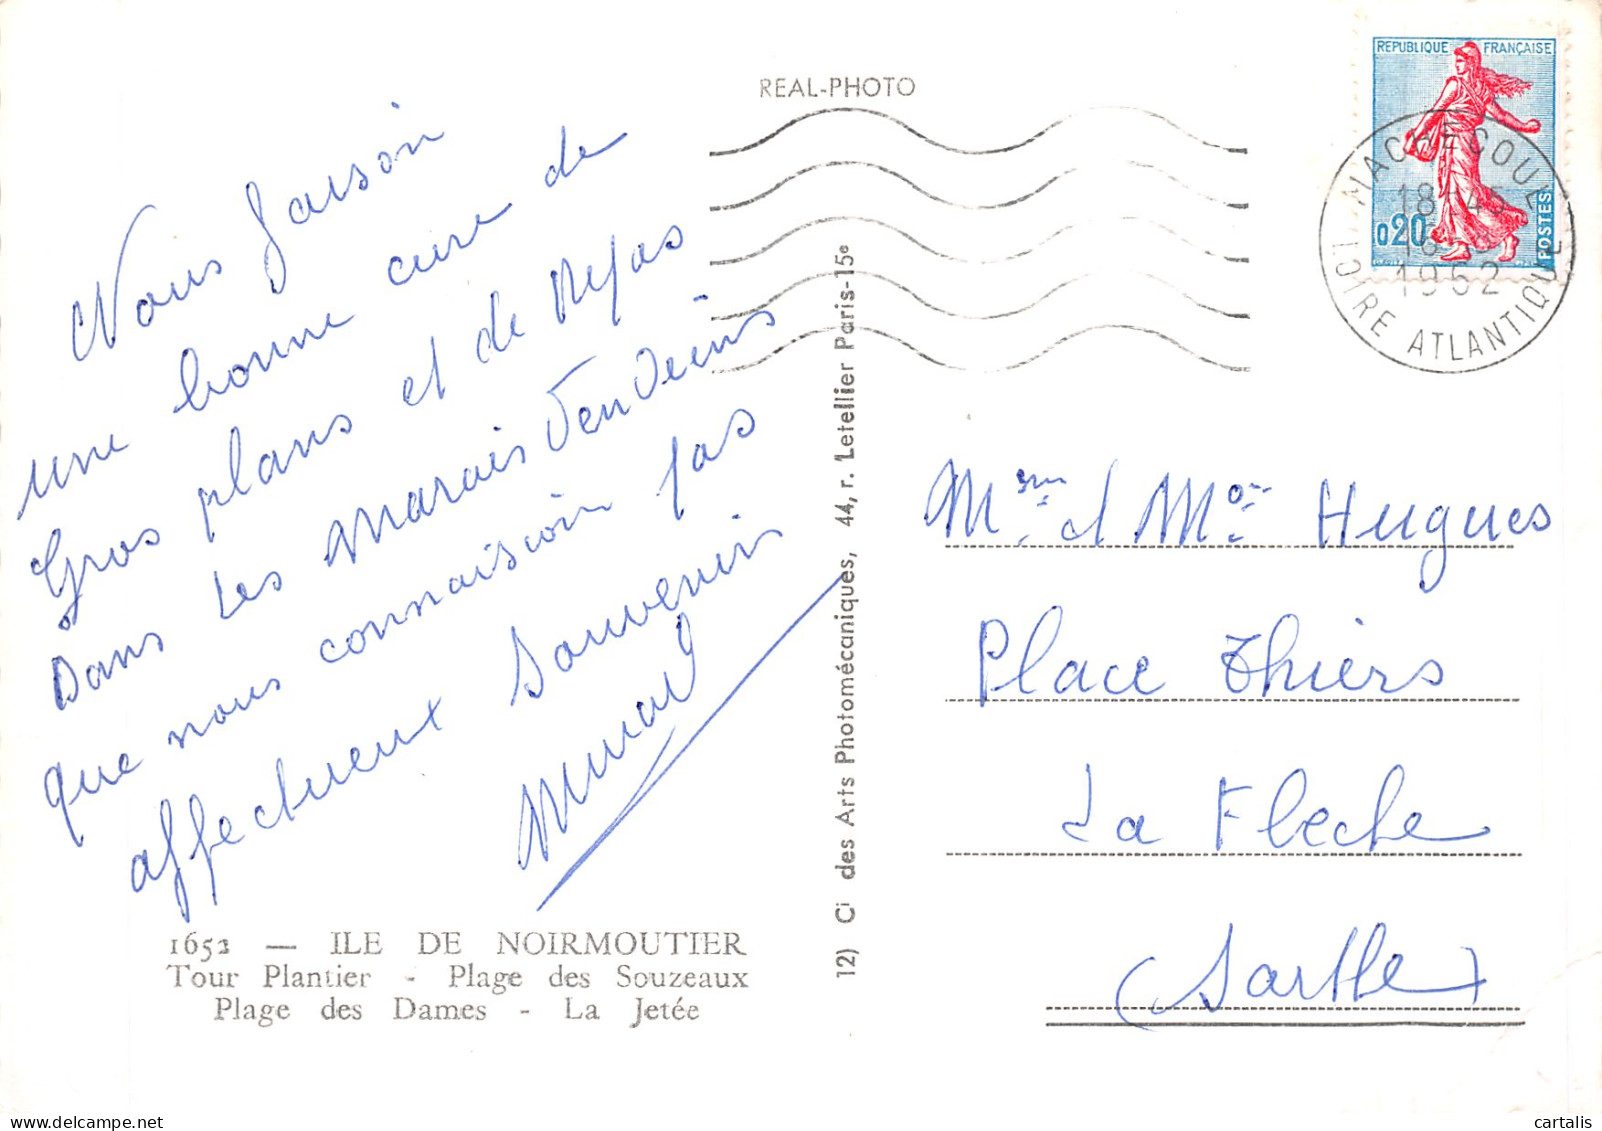 REAL-PHOTO
REPUBLIQUE FRANÇAISE
0,20
POSTES
MACHECOUL
18-45
1962
LOIRE ATLANTIQUE
Nous faison
une bonne cure de
Gros plans et de Repas
Dans les Marais Vendeins
que nous connaission pas
affectueux Souvenirs
Mme et Mr Hugues
Place Thiers
La Fleche
(Sarthe)
1652 — ILE DE NOIRMOUTIER
Tour Plantier - Plage des Souzeaux
Plage des Dames - La Jetée
12) Ci des Arts Photomécaniques, 44, r. Letellier Paris-15e
cartalis